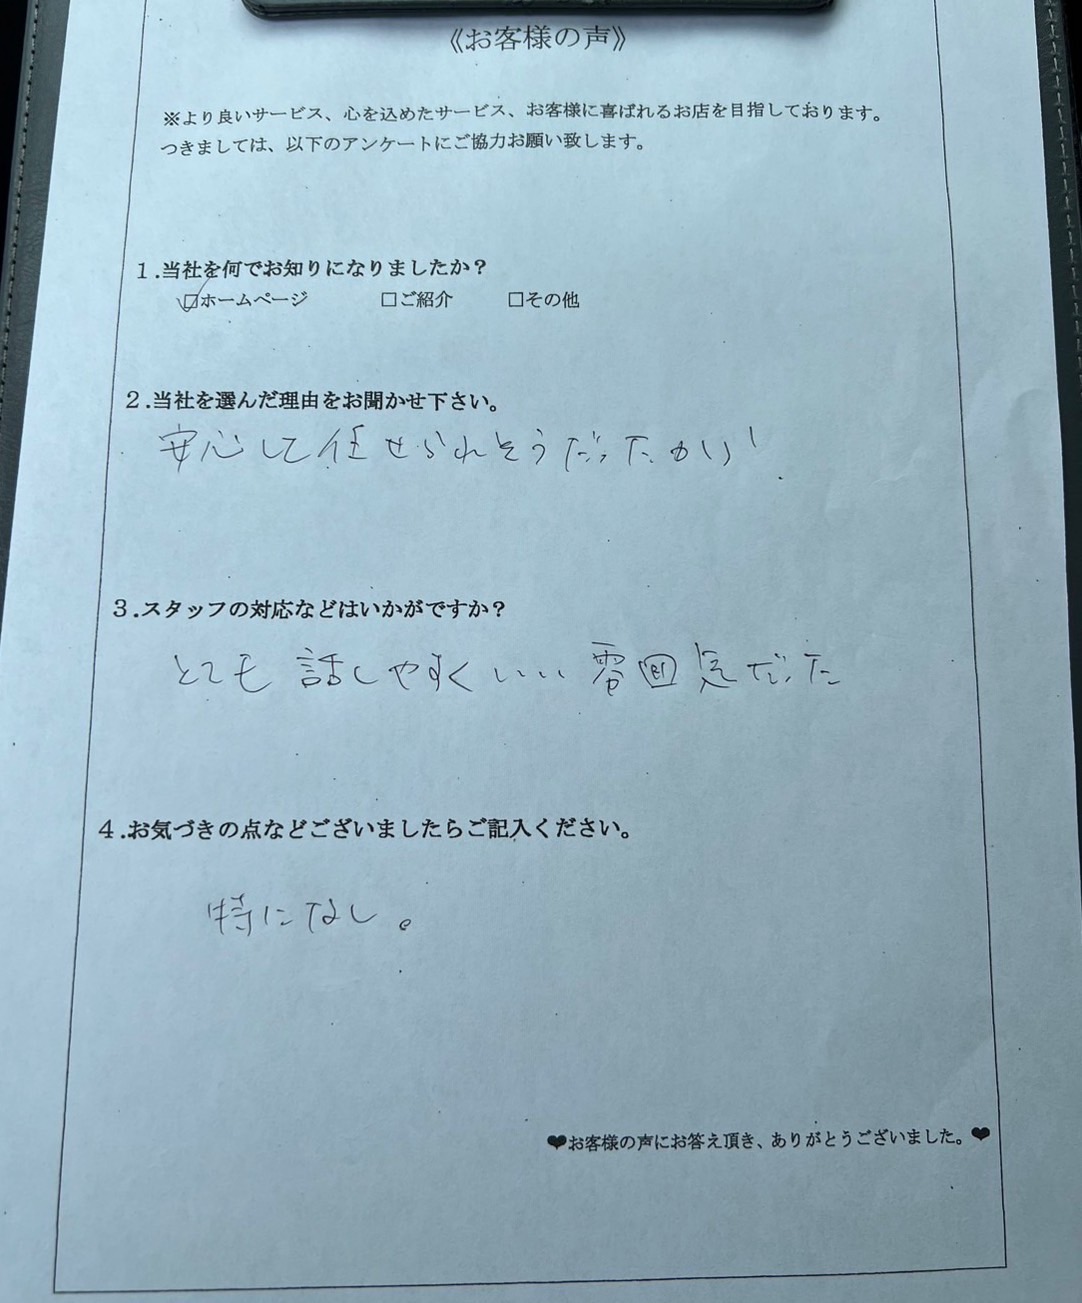 《お客様の声》
※より良いサービス、心を込めたサービス、お客様に喜ばれるお店を目指しております。
つきましては、以下のアンケートにご協力お願い致します。
1.当社を何でお知りになりましたか？
☑ホームページ □ご紹介 □その他
2.当社を選んだ理由をお聞かせ下さい。
安心して任せられそうだったから
3.スタッフの対応などはいかがですか？
とても話しやすくいい雰囲気だった
4.お気づきの点などございましたらご記入ください。
特になし。
❤お客様の声にお答え頂き、ありがとうございました。❤